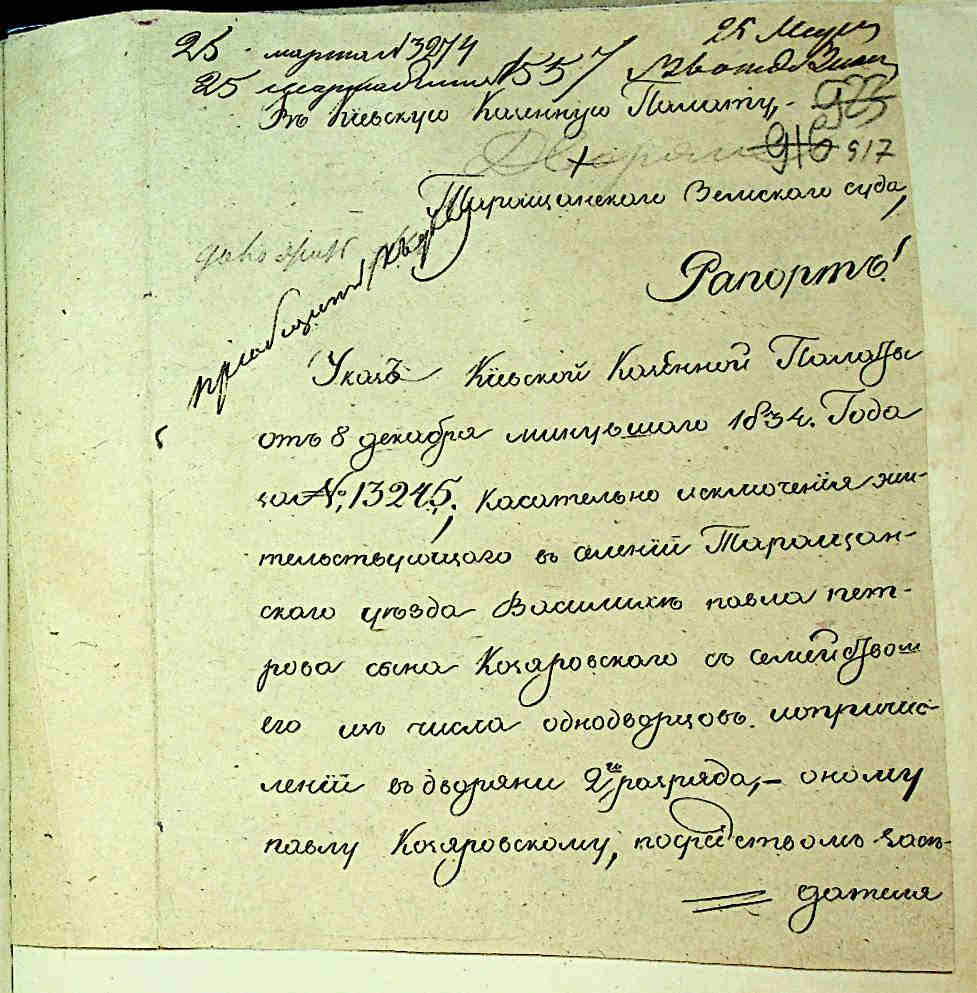 25 марта № 3274
25 марта № 557
25 Марта
Въ Кіевскую Казенную Палату,
922
916 917
Дворян
Таращанскаго Земского суда,
Рапортъ!
пріобщить къ делу
Указъ Кіевской Казенной Палаты
отъ 8 декабря минувшаго 1834. Года
за №, 13245, касательно исключения жи-
тельствующаго въ селеніи Таращан-
скаго уезда Василихъ павла пет-
рова сына Козяровскаго съ семействомъ
его изъ числа однодворцовъ. ипричис-
леніи въ дворяни 2го разряда,- оному
павлу Козяровскому, посредствомъ засъ-
дателя